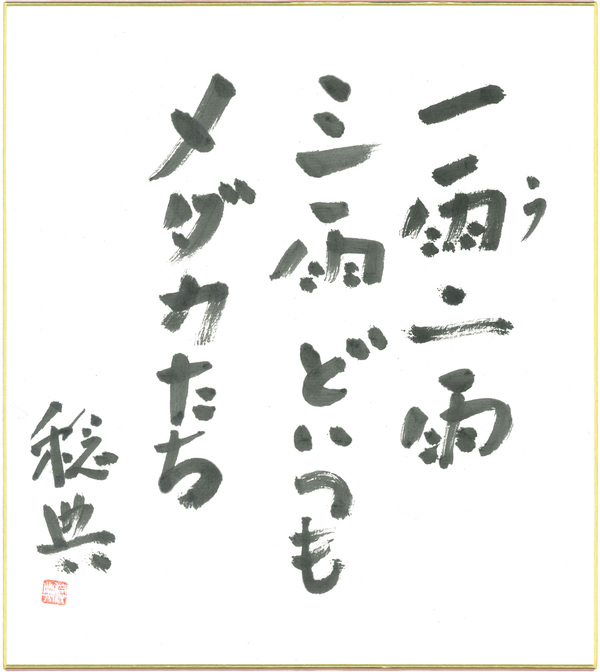 一雨二雨
う
三雨どいつも
メダカたち
稔典